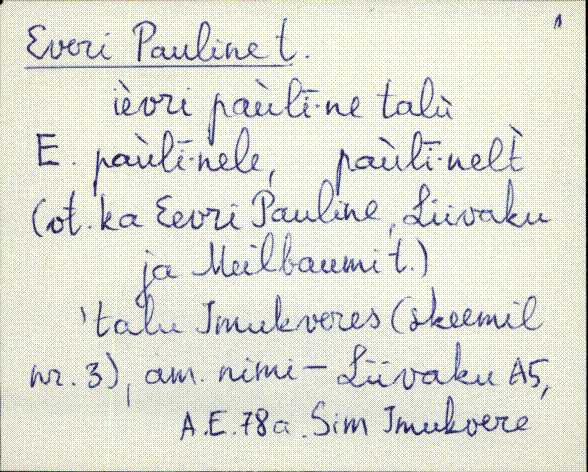 1
Everi Pauline t.
ìevri paùlī·ne talù
E. paùlī·nele, paùlī·nelt̀
(vt. ka Eevri Pauline, Liivaku
ja Meilbaumi t.)
'talu Imukveres (skeemil
nr. 3), am. nimi – Liivaku A5,
A.E. 78 a. Sim Imukvere